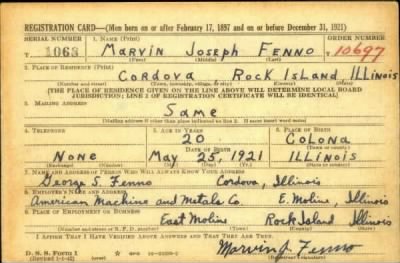 REGISTRATION CARD—(Men born on or after February 17, 1897 and on or before December 31, 1921)
SERIAL NUMBER 1. NAME (Print) ORDER NUMBER
1063 MARVIN JOSEPH FENNO 10697
(First) (Middle) (Last)
2. PLACE OF RESIDENCE (Print)
CORDOVA ROCK ISLAND ILLINOIS
(Number and street) (Town, township, village, or city) (County) (State)
[THE PLACE OF RESIDENCE GIVEN ON THE LINE ABOVE WILL DETERMINE LOCAL BOARD
JURISDICTION; LINE 2 OF REGISTRATION CERTIFICATE WILL BE IDENTICAL]
3. MAILING ADDRESS
Same
(Mailing address if other than place indicated on line 2. If same insert word same)
4. TELEPHONE 5. AGE IN YEARS 6. PLACE OF BIRTH
20 COLONA
DATE OF BIRTH (Town or county)
NONE May 25, 1921 ILLINOIS
(Exchange) (Number) (Mo.) (Day) (Yr.) (State or country)
7. NAME AND ADDRESS OF PERSON WHO WILL ALWAYS KNOW YOUR ADDRESS
George S. Fenno Cordova, Illinois
8. EMPLOYER'S NAME AND ADDRESS
American Machine and Metals Co. E. Moline, Illinois
9. PLACE OF EMPLOYMENT OR BUSINESS
East Moline Rock Island Illinois
(Number and street or R. F. D. number) (Town) (County) (State)
I AFFIRM THAT I HAVE VERIFIED ABOVE ANSWERS AND THAT THEY ARE TRUE.
D. S. S. Form 1 Marvin J. Fenno